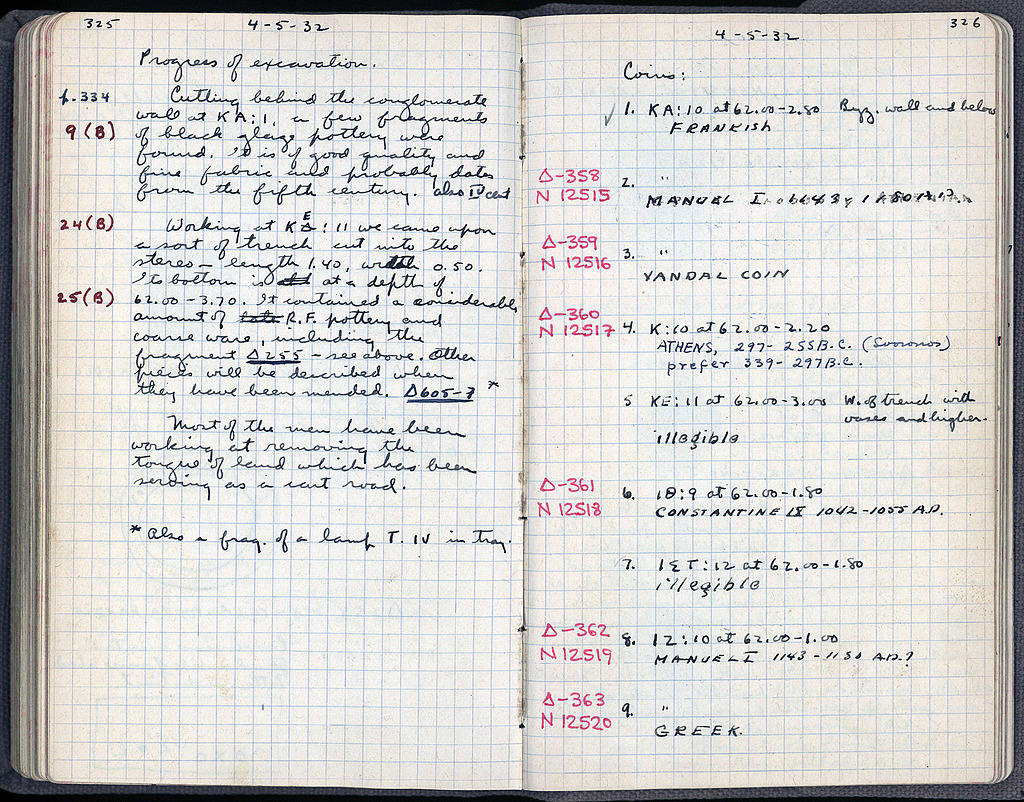 325
4-5-32
Progress of excavation.
p.334
Cutting behind the conglomerate
wall at KA:1, a few fragments
9(B)
of black glaze pottery were
found. It is of good quality and
fine fabric and probably dates
from the fifth century. also IV cent
24(B)
Working at KΔ E:11 we came upon
a sort of trench cut into the
stereo – length 1.40, width 0.50.
Its bottom is at a depth of
25(B)
62.00-3.70. It contained a considerable
amount of R.F. pottery and
coarse ware, including the
fragment Δ255 – see above. Other
pieces will be described when
they have been mended. Δ605-7 *
Most of the men have been
working at removing the
tongue of land which has been
serving as a cart road.
* Also a frag. of a lamp T. IV in tray.
326
4-5-32
Coins:
✓ 1. KA:10 at 62.00-2.80 Byz. wall and below
FRANKISH
Δ-358
N 12515
2. "
MANUEL I
Δ-359
N 12516
3. "
VANDAL COIN
Δ-360
N 12517
4. K:10 at 62.00-2.20
ATHENS, 297-255 B.C. (Svoronos)
prefer 339-297 B.C.
5 KE:11 at 62.00-3.00 W. of trench with
vases and higher.
illegible
Δ-361
N 12518
6. IΘ:9 at 62.00-1.80
CONSTANTINE IX 1042-1055 A.D.
7. IΣT:12 at 62.00-1.80
illegible
Δ-362
N 12519
8. IZ:10 at 62.00-1.00
MANUEL I 1143-1180 A.D.?
Δ-363
N 12520
9. "
GREEK.